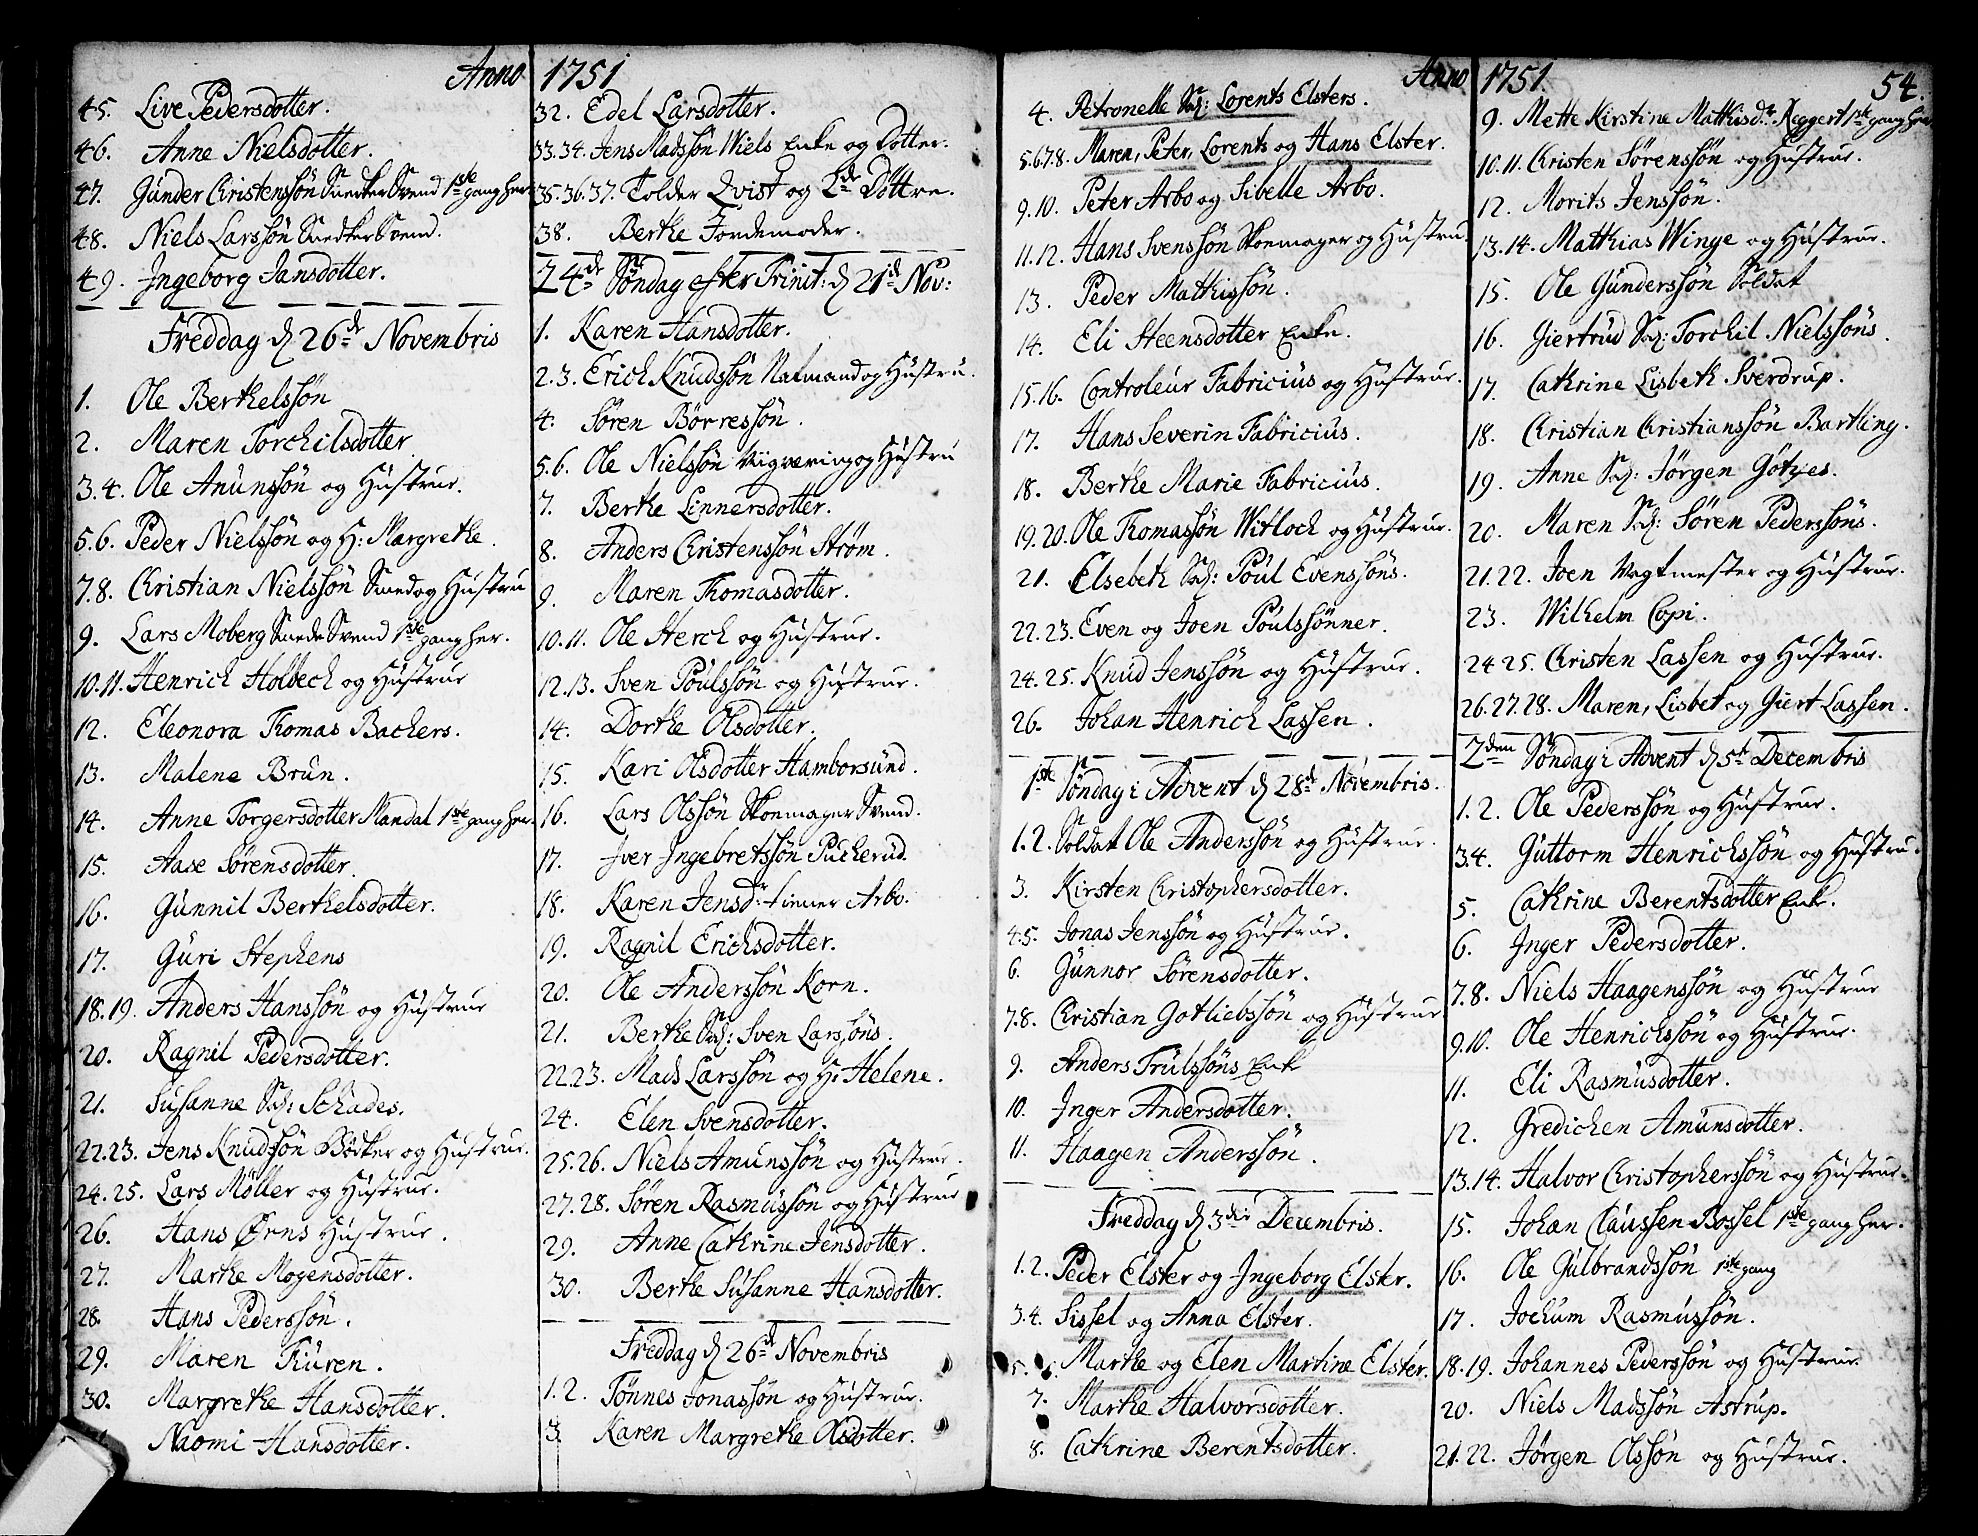 Anno 1751
45. Live Pedersdotter.
46. Anne Nielsdotter.
47. Gunder Christenssön Snedker Svend 1ste gang her
48. Niels Larssön Snedker Svend.
49. Ingeborg Jansdotter.
Freddag d. 26de Novembris
1. Ole Berthelssön
2. Maren Torchilsdotter
3.4. Ole Amunssön og Hustrue.
5.6. Peder Nielssön og H: Margrethe.
7.8. Christian Nielssön Smed og Hustru
9. Lars Moberg Smede Svend 1ste gang her.
10.11. Henrich Holbech og Hustrue
12. Eleonora Thomas Bachers.
13. Malene Brun.
14. Anne Torgersdotter Mandal 1ste gang her.
15. Aase Sörensdotter.
16. Gunnil Berthelsdotter.
17. Guri Stephens
18.19. Anders Hanssön og Hustrue
20. Ragnil Pedersdotter.
21. Susanne Sal: Schades.
22.23. Jens Knudssön Bödker og Hustrue.
24.25. Lars Möller og Hustrue.
26. Hans Ørns Hustrue.
27. Marthe Mogensdotter.
28. Hans Pederssön.
29. Maren Thuren.
30. Margrethe Hansdotter.
Naomi Hansdotter.
32. Edel Larsdotter.
33.34. Jens Madssön Wiels Enke og Dotter.
35.36.37. Tolder Qvist og 2de Döttre.
38. Berthe Jordemoder.
24de Söndag efter Trinit: d. 21de Nov:
1. Karen Hansdotter.
2.3. Erich Knudssön Natmand og Hustru.
4. Sören Börressön.
5.6. Ole Nielssön og Hustru
7. Berthe Linnersdotter.
8. Anders Christenssön Strøm.
9. Maren Thomasdotter.
10.11. Ole Sterch og Hustrue.
12.13. Sven Poulssön og Hustrue.
14. Dorthe Olsdotter.
15. Kari Olsdotter Hamborsund.
16. Lars Olssön Skoemager Svend.
17. Iver Ingebretssön Pucherud.
18. Karen Jensdr: tiener Arbo.
19. Ragnil Erichsdotter.
20. Ole Anderssön Korn.
21. Berthe Sal: Sven Larssöns.
22.23. Mads Larssön og H: Helene.
24. Elen Svensdotter.
25.26. Niels Amunssön og Hustrue.
27.28. Sören Rasmussön og Hustrue
29. Anne Cathrine Jensdotter.
30. Berthe Susanne Hansdotter.
Freddag d. 26de Novembris
1.2. Tönnes Jonassön og Hustrue.
3. Karen Margrethe Olsdotter.
Anno 1751. 54.
4. Petronelle Sal: Lorents Elsters.
5.6.7.8. Maren, Peter, Lorents og Hans Elster.
9.10. Peter Arbo og Sibelle Arbo.
11.12. Hans Svenssön Skoemager og Hustru.
13. Peder Mathissön.
14. Eli Steensdotter Enke.
15.16. Controleur Fabricius og Hustrue.
17. Hans Severin Fabricius.
18. Berthe Marie Fabricius.
19.20. Ole Thomassön Witloch og Hustrue.
21. Elsebeth Sal: Poul Evenssöns.
22.23. Even og Joen Poulssönner.
24.25. Knud Jenssön og Hustrue.
26. Johan Henrich Lassen.
1ste Söndag i Advent d. 28de Novembris.
1.2. Soldat Ole Anderssön og Hustrue.
3. Kirsten Christophersdotter.
4.5. Jonas Jenssön og Hustrue.
6. Gunnor Sörensdotter.
7.8. Christian Gotliebssön og Hustrue
9. Anders Trulssöns Enke
10. Inger Andersdotter.
11. Haagen Anderssön.
Freddag d. 3die Decembris.
1.2. Peder Elster og Ingeborg Elster.
3.4. Sissel og Anna Elster.
5.6. Marthe og Elen Martine Elster.
7. Marthe Halvorsdotter.
8. Cathrine Berentsdotter.
9. Mette Kirstine Mathisdtr. Riggert 1ste gang her
10.11. Christen Sörenssön og Hustrue.
12. Morits Jenssön.
13.14. Mathias Winge og Hustrue.
15. Ole Gunderssön Soldat
16. Giertrud Sal: Torchil Nielssöns.
17. Cathrine Lisbeth Sverdrup.
18. Christian Christianssön Bartling.
19. Anne Sal: Jörgen Götzes.
20. Maren Sal: Sören Pederssöns.
21.22. Joen Vagtmester og Hustrue.
23. Wilhelm Copi.
24.25. Christen Lassen og Hustrue.
26.27.28. Maren, Lisbet og Giert Lassen.
2den Söndag i Advent d. 5te Decembris
1.2. Ole Pederssön og Hustrue.
3.4. Guttorm Henrichssön og Hustru.
5. Cathrine Berentsdotter Enke.
6. Inger Pedersdotter.
7.8. Niels Haagenssön og Hustrue
9.10. Ole Henrichssön og Hustrue.
11. Eli Rasmusdotter.
12. Gredichen Amunsdotter.
13.14. Halvor Christopherssön og Hustrue.
15. Johan Claussen Bossel 1ste gang her.
16. Ole Gulbrandssön 1ste gang
17. Jochum Rasmussön.
18.19. Johannes Pederssön og Hustrue.
20. Niels Madssön Astrup.
21.22. Jörgen Olssön og Hustrue.